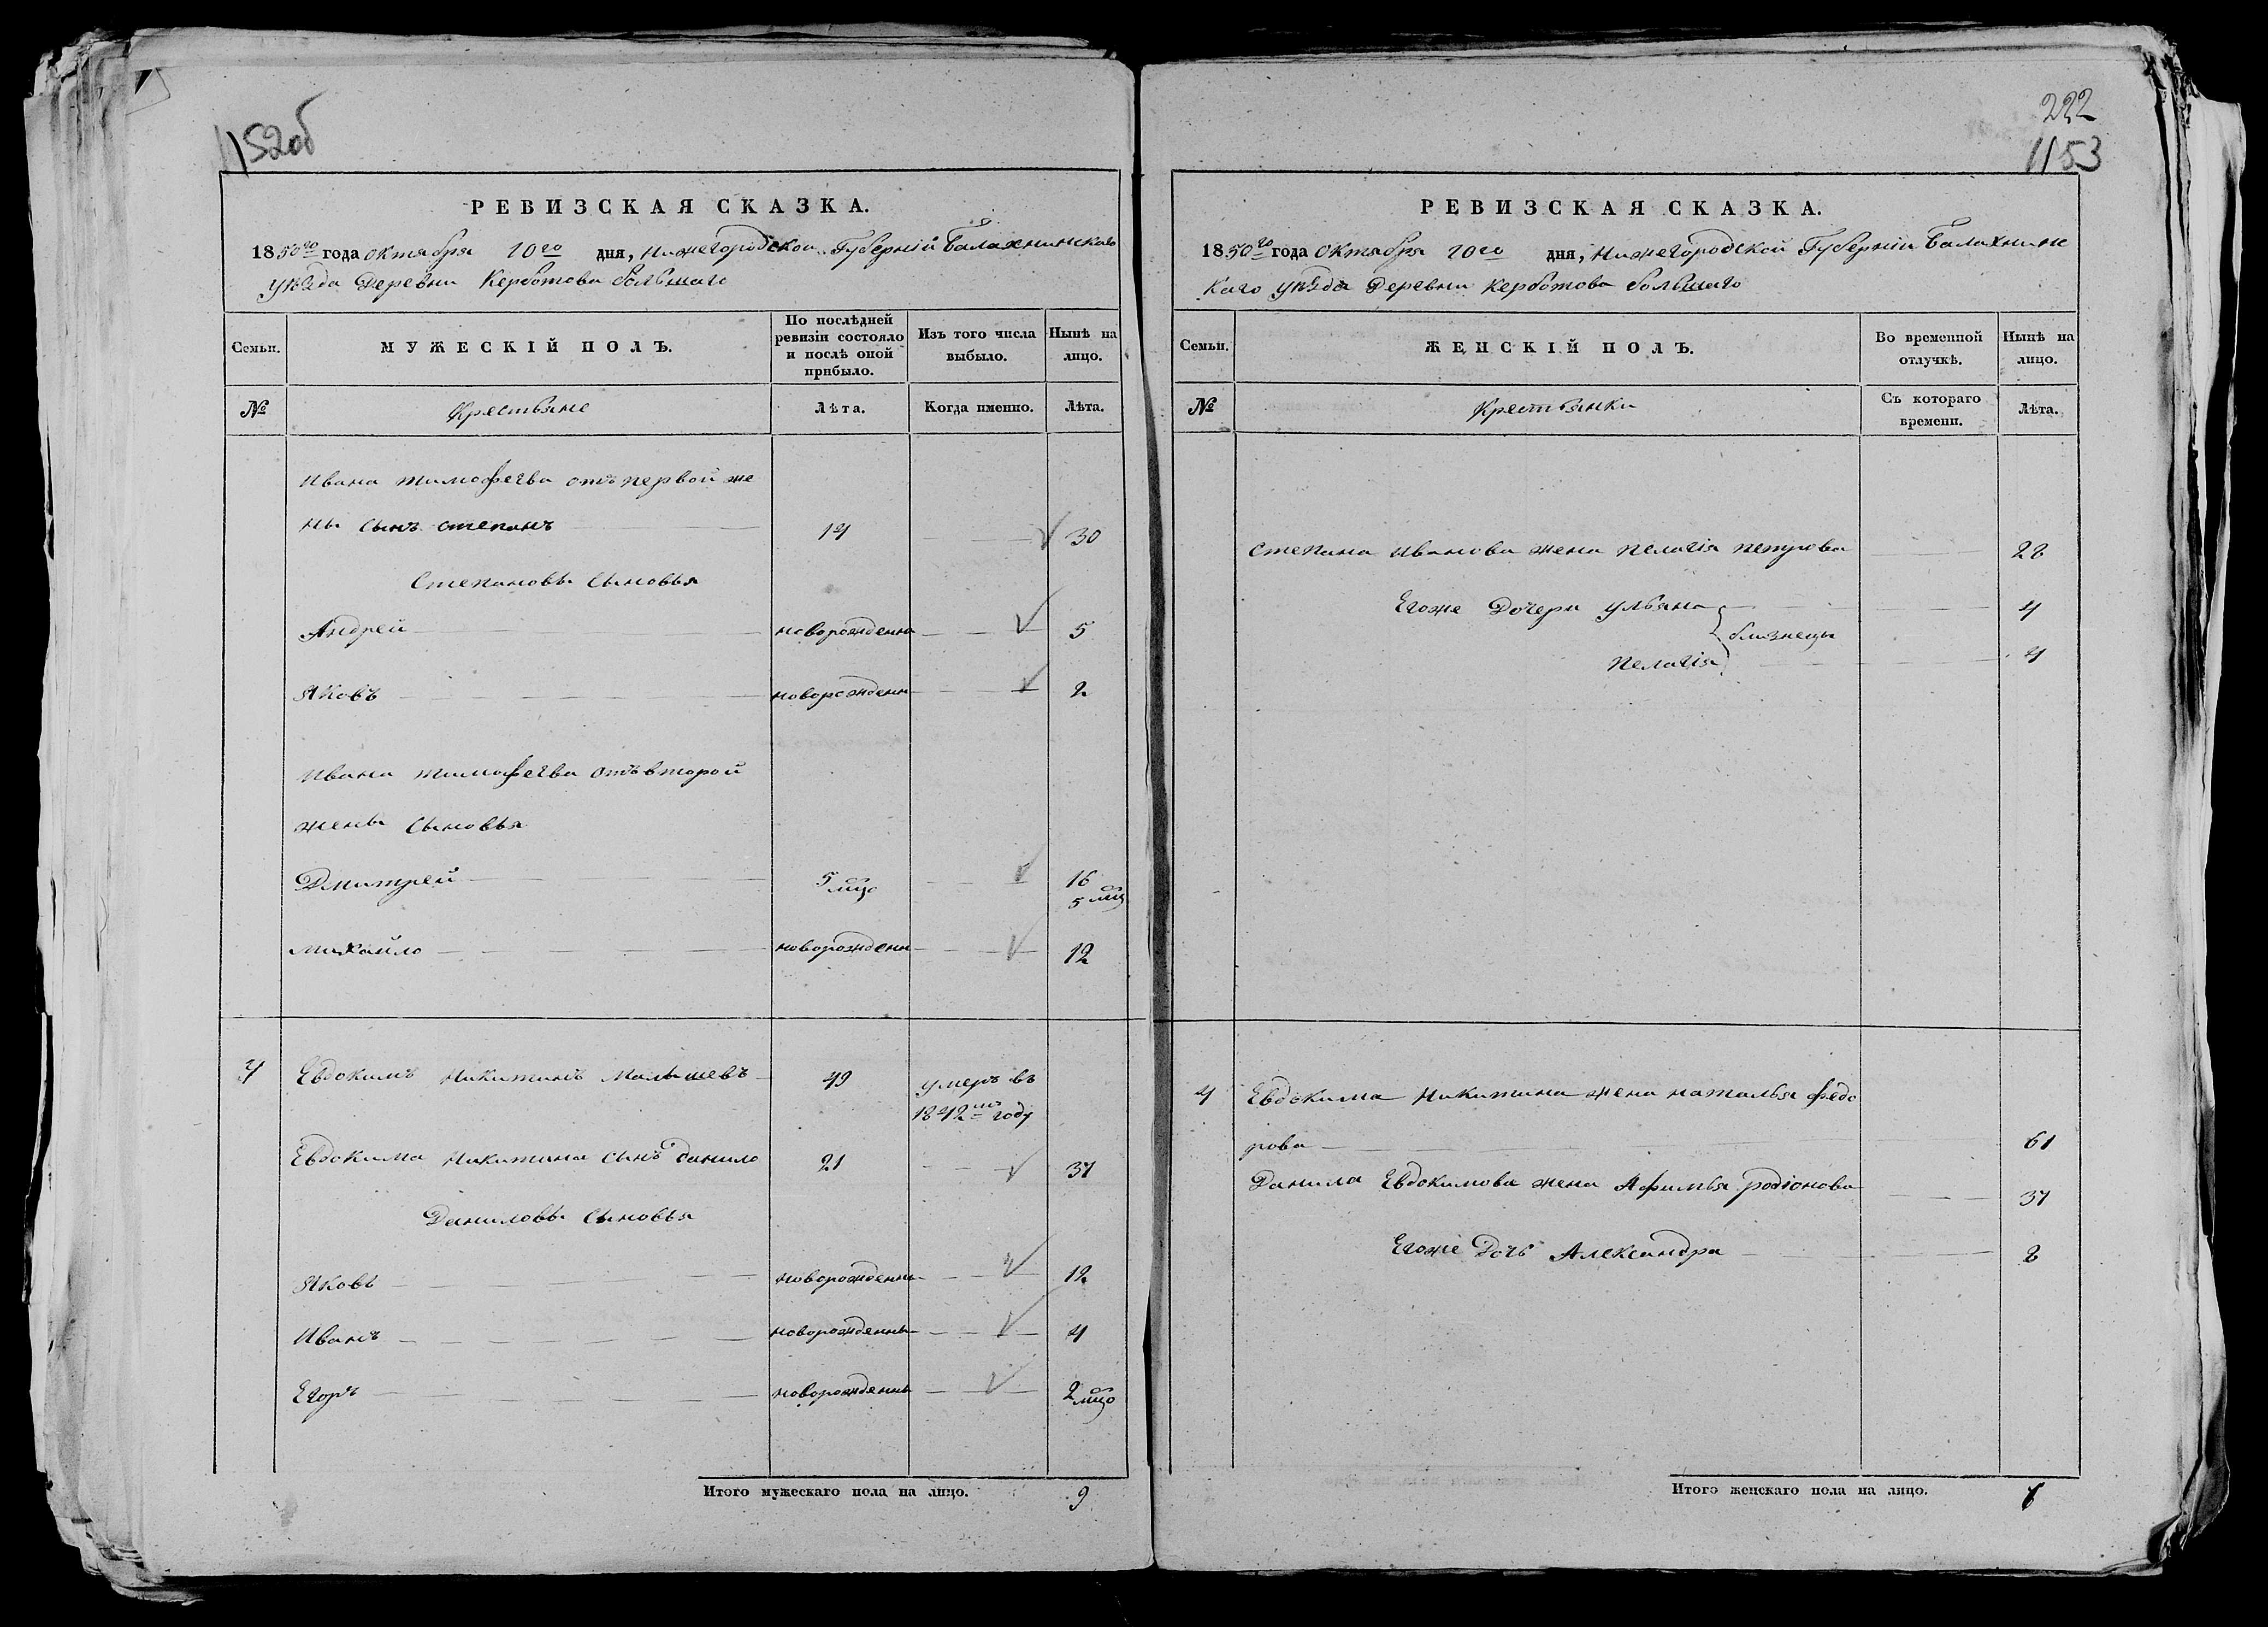 1152об
РЕВИЗСКАЯ СКАЗКА.
1850го года октября 10го дня, Нижегородской Губерніи Балахнинскаго
уѣзда деревни Керботова большаго
Семьи. МУЖЕСКІЙ ПОЛЪ. По послѣдней ревизіи состояло и послѣ оной прибыло. Изъ того числа выбыло. Нынѣ на лицо.
№ Крестьяне Лѣта. Когда именно. Лѣта.
Ивана тимофеева отъ первой же
ны сынъ степанъ 14 30
Степановы сыновья
Андрей новорожденн 5
Яковъ новорожденн 2
Ивана тимофеева отъ второй
жены сыновья
Дмитрей 5 мцо 16 5 мц
михайло новорожденн 12
4 Евдокимъ Никитинъ Малышевъ 49 умеръ въ
1842мъ году
Евдокима Никитина сынъ данило 21 37
Даниловы сыновья
Яковъ новорожденны 12
Иванъ новорожденны 4
Егоръ новорожденны 2 мцо
Итого мужескаго пола на лицо. 9
222
1153
РЕВИЗСКАЯ СКАЗКА.
1850го года октября 10го дня, Нижегородской Губерніи Балахнинс
каго уѣзда деревни Керботова большаго
Семьи. ЖЕНСКІЙ ПОЛЪ. Во временной отлучкѣ. Нынѣ на лицо.
№ Крестьянки Съ котораго времени. Лѣта.
степана Иванова жена пелагія петрова 28
Егоже дочери ульяна 4
близнецы
пелагія 4
4 Евдокима Никитина жена наталья федо
рова 61
Данила Евдокимова жена Афимья родіонова 37
Егоже дочь Александра 8
Итого женскаго пола на лицо. 6